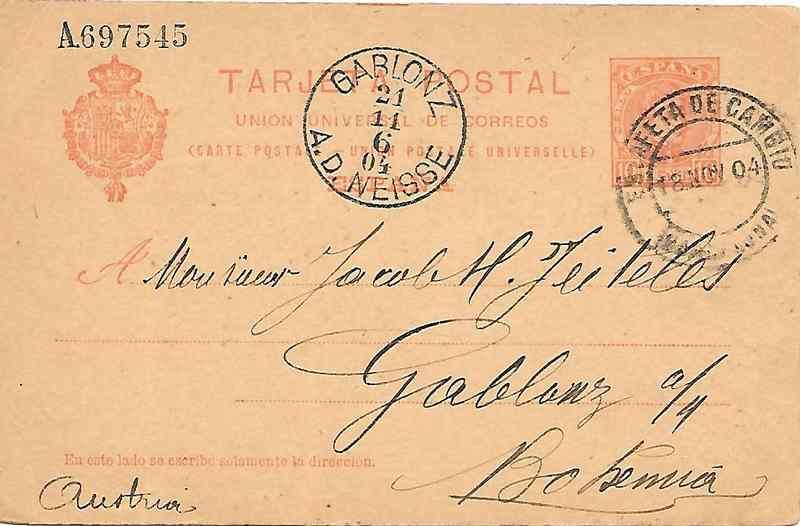 A.697545
TARJETA POSTAL
UNION UNIVERSAL DE CORREOS
(CARTE POSTALE - UNION POSTALE UNIVERSELLE)
ESPAÑA
GABLONZ
21
11
6
04
A.D. NEISSE
ESPAÑA
10
10
ESTAFETA DE CAMBIO
18 NOV 04
A Monsieur Jacob H. Jeiteles
Gablonz a/N
Bohemia
En este lado se escribe solamente la dirección.
Austria